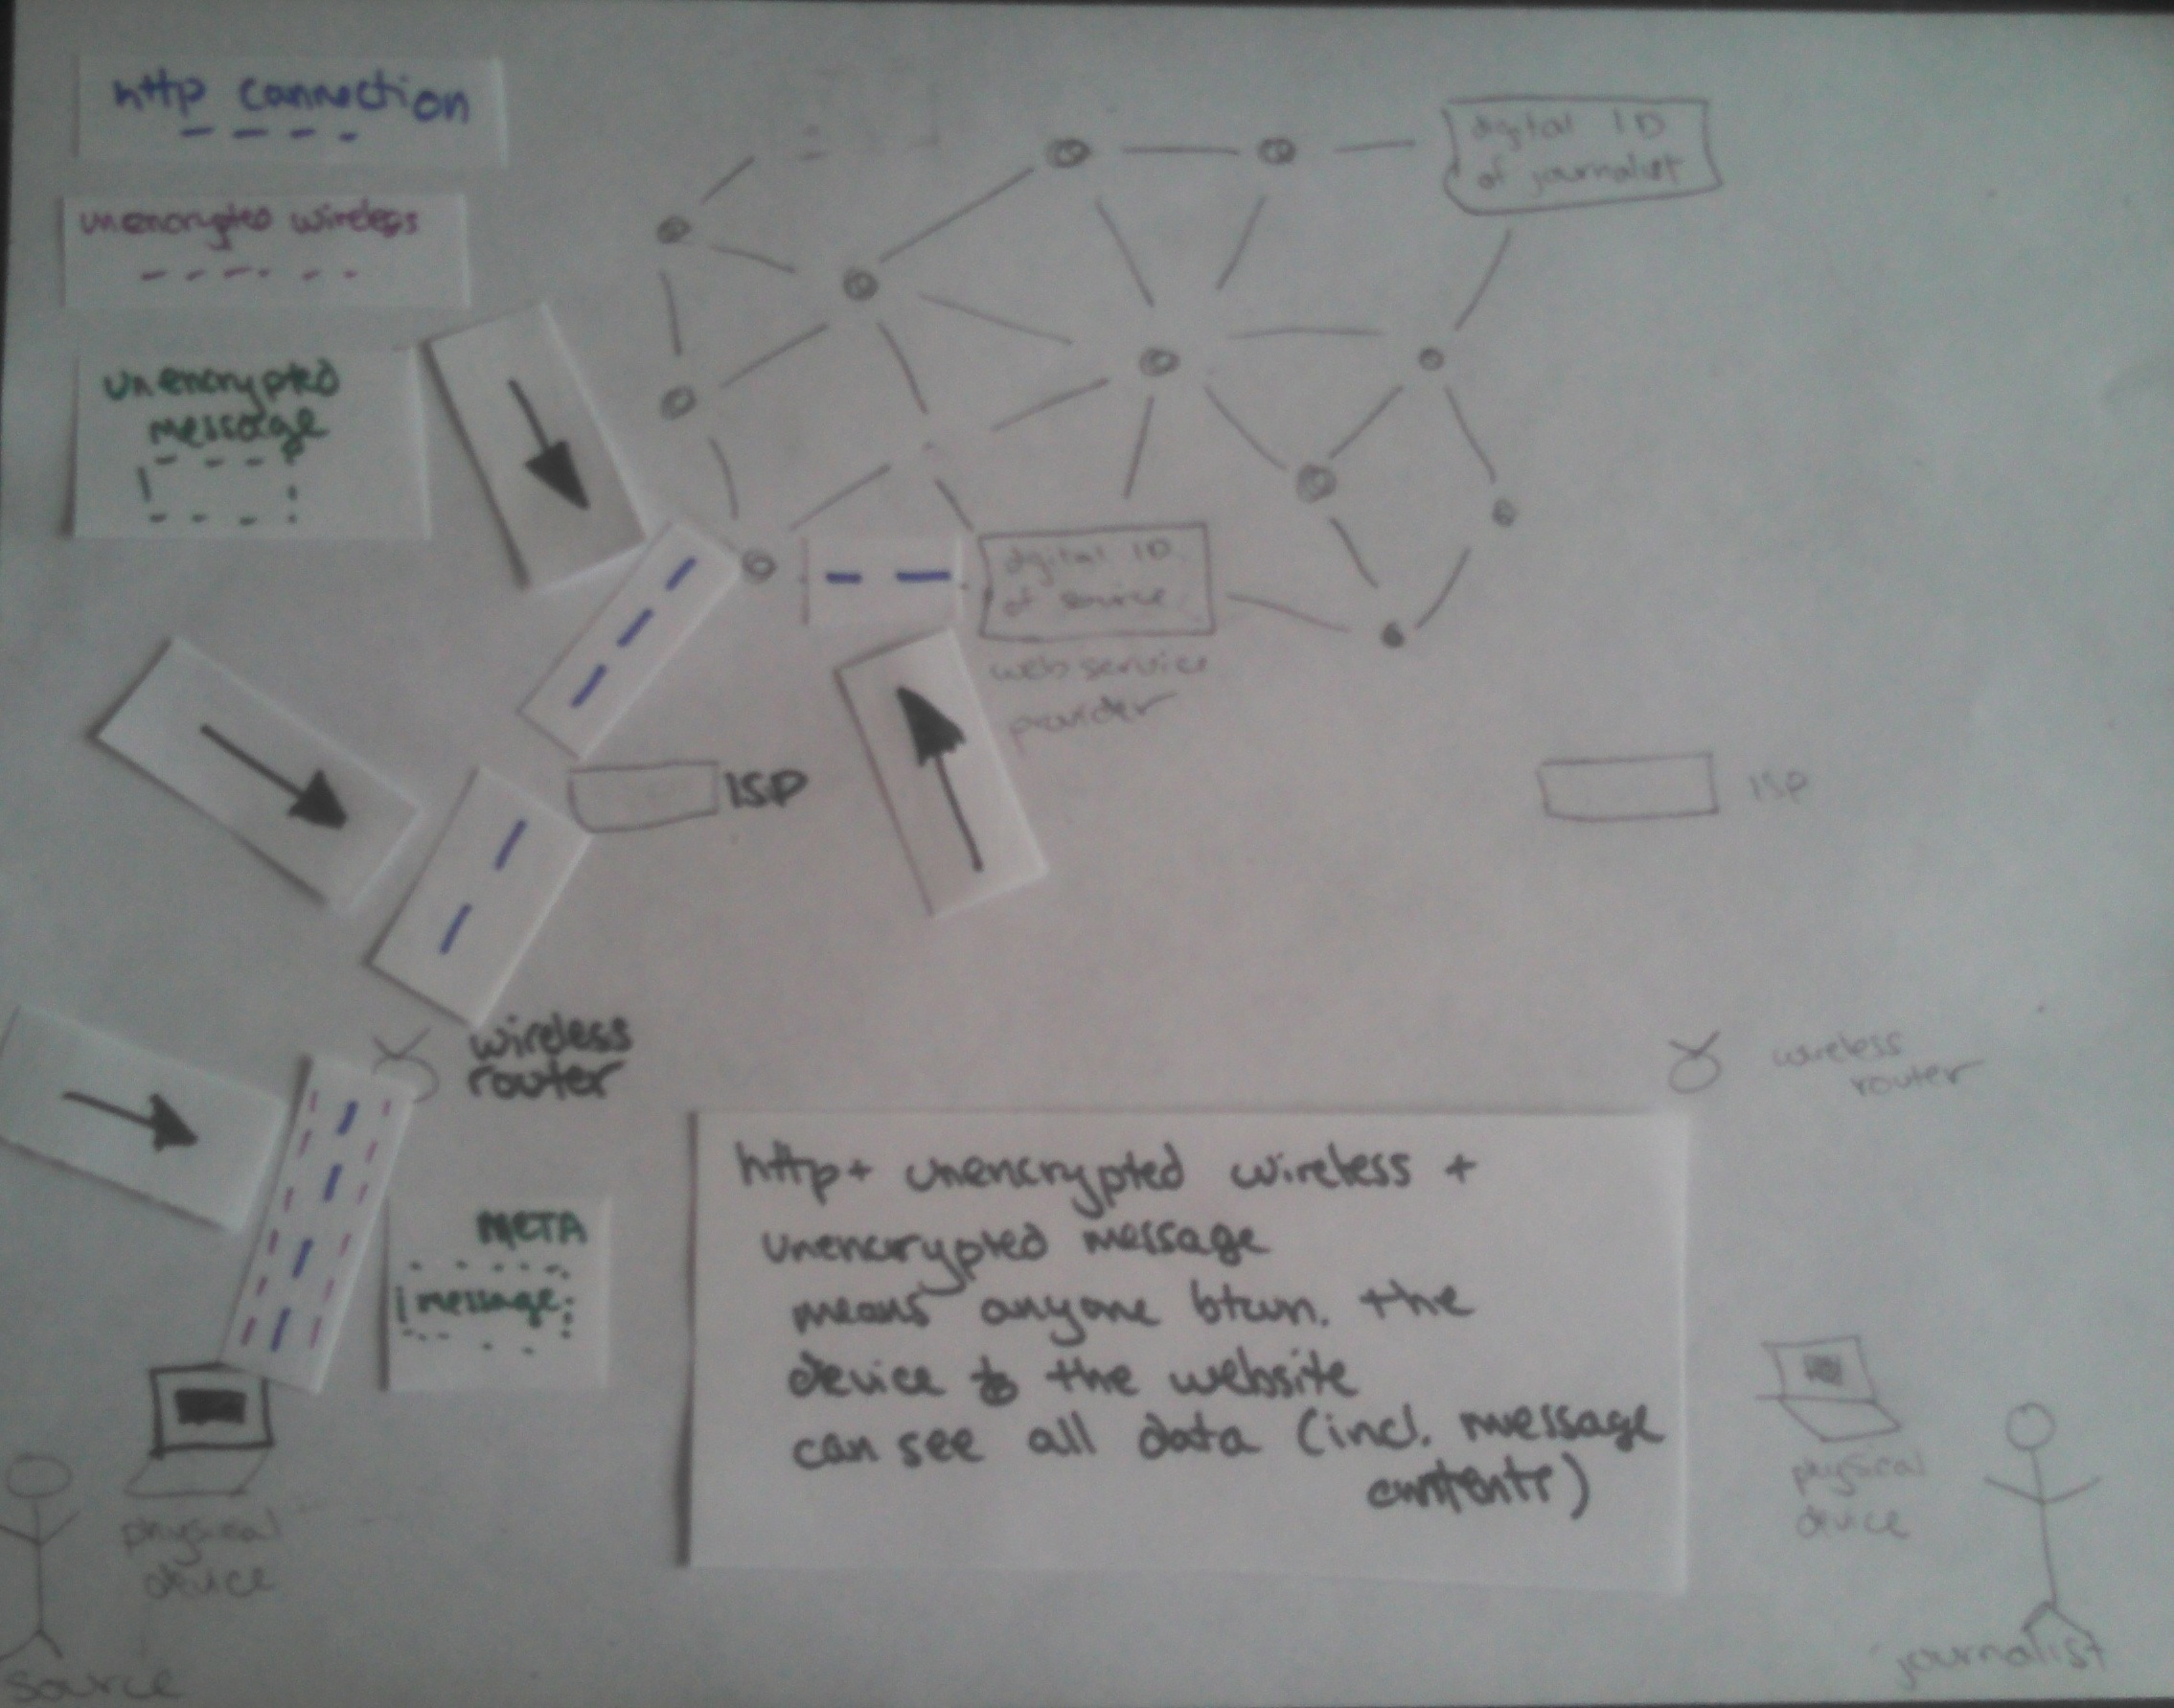 http connection
unencrypted wireless
unencrypted
message
digital ID
of journalist
digital ID
of source
web service
provider
ISP
ISP
wireless
router
wireless
router
META
message
http + unencrypted wireless +
unencrypted message
means anyone btwn. the
device & the website
can see all data (incl. message
contents)
physical
device
source
physical
device
journalist